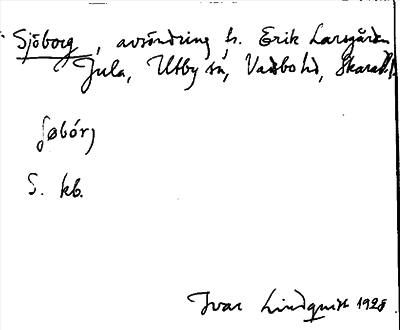 Sjöborg, avsöndring fr. Erik Larsgården
Jula, Utby sn, Vadsbo hd, Skarab. l.
S. kb.
Ivar Lindquist 1928